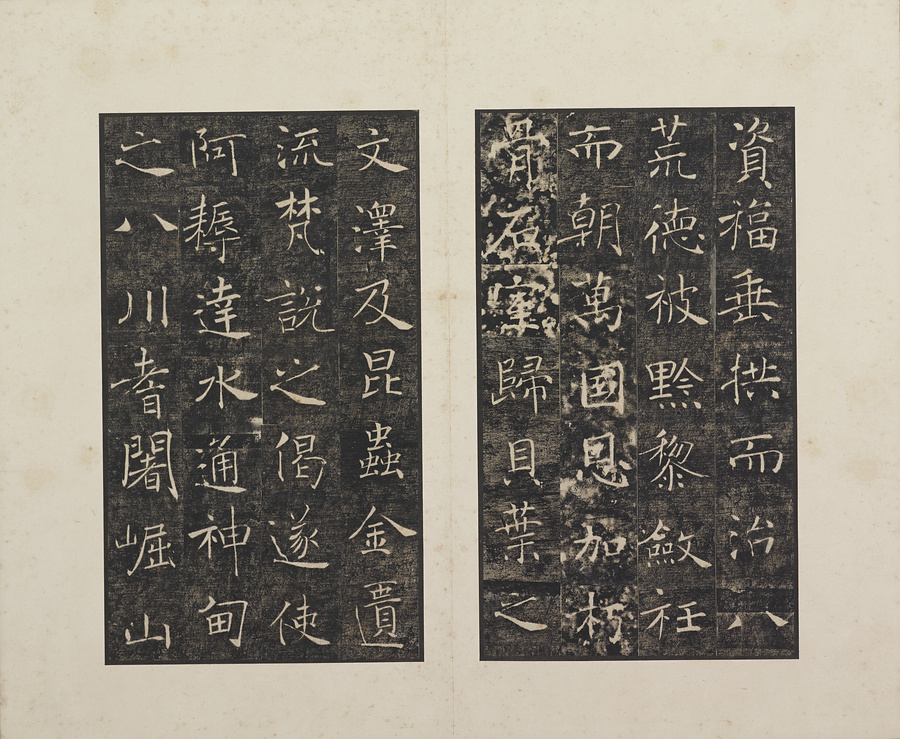 資福垂拱而治八
荒德被黔黎斂衽
而朝萬国恩加朽
骨石室歸貝葉之
文澤及昆蟲金匱
流梵説之偈遂使
阿耨達水通神甸
之八川耆闍崛山